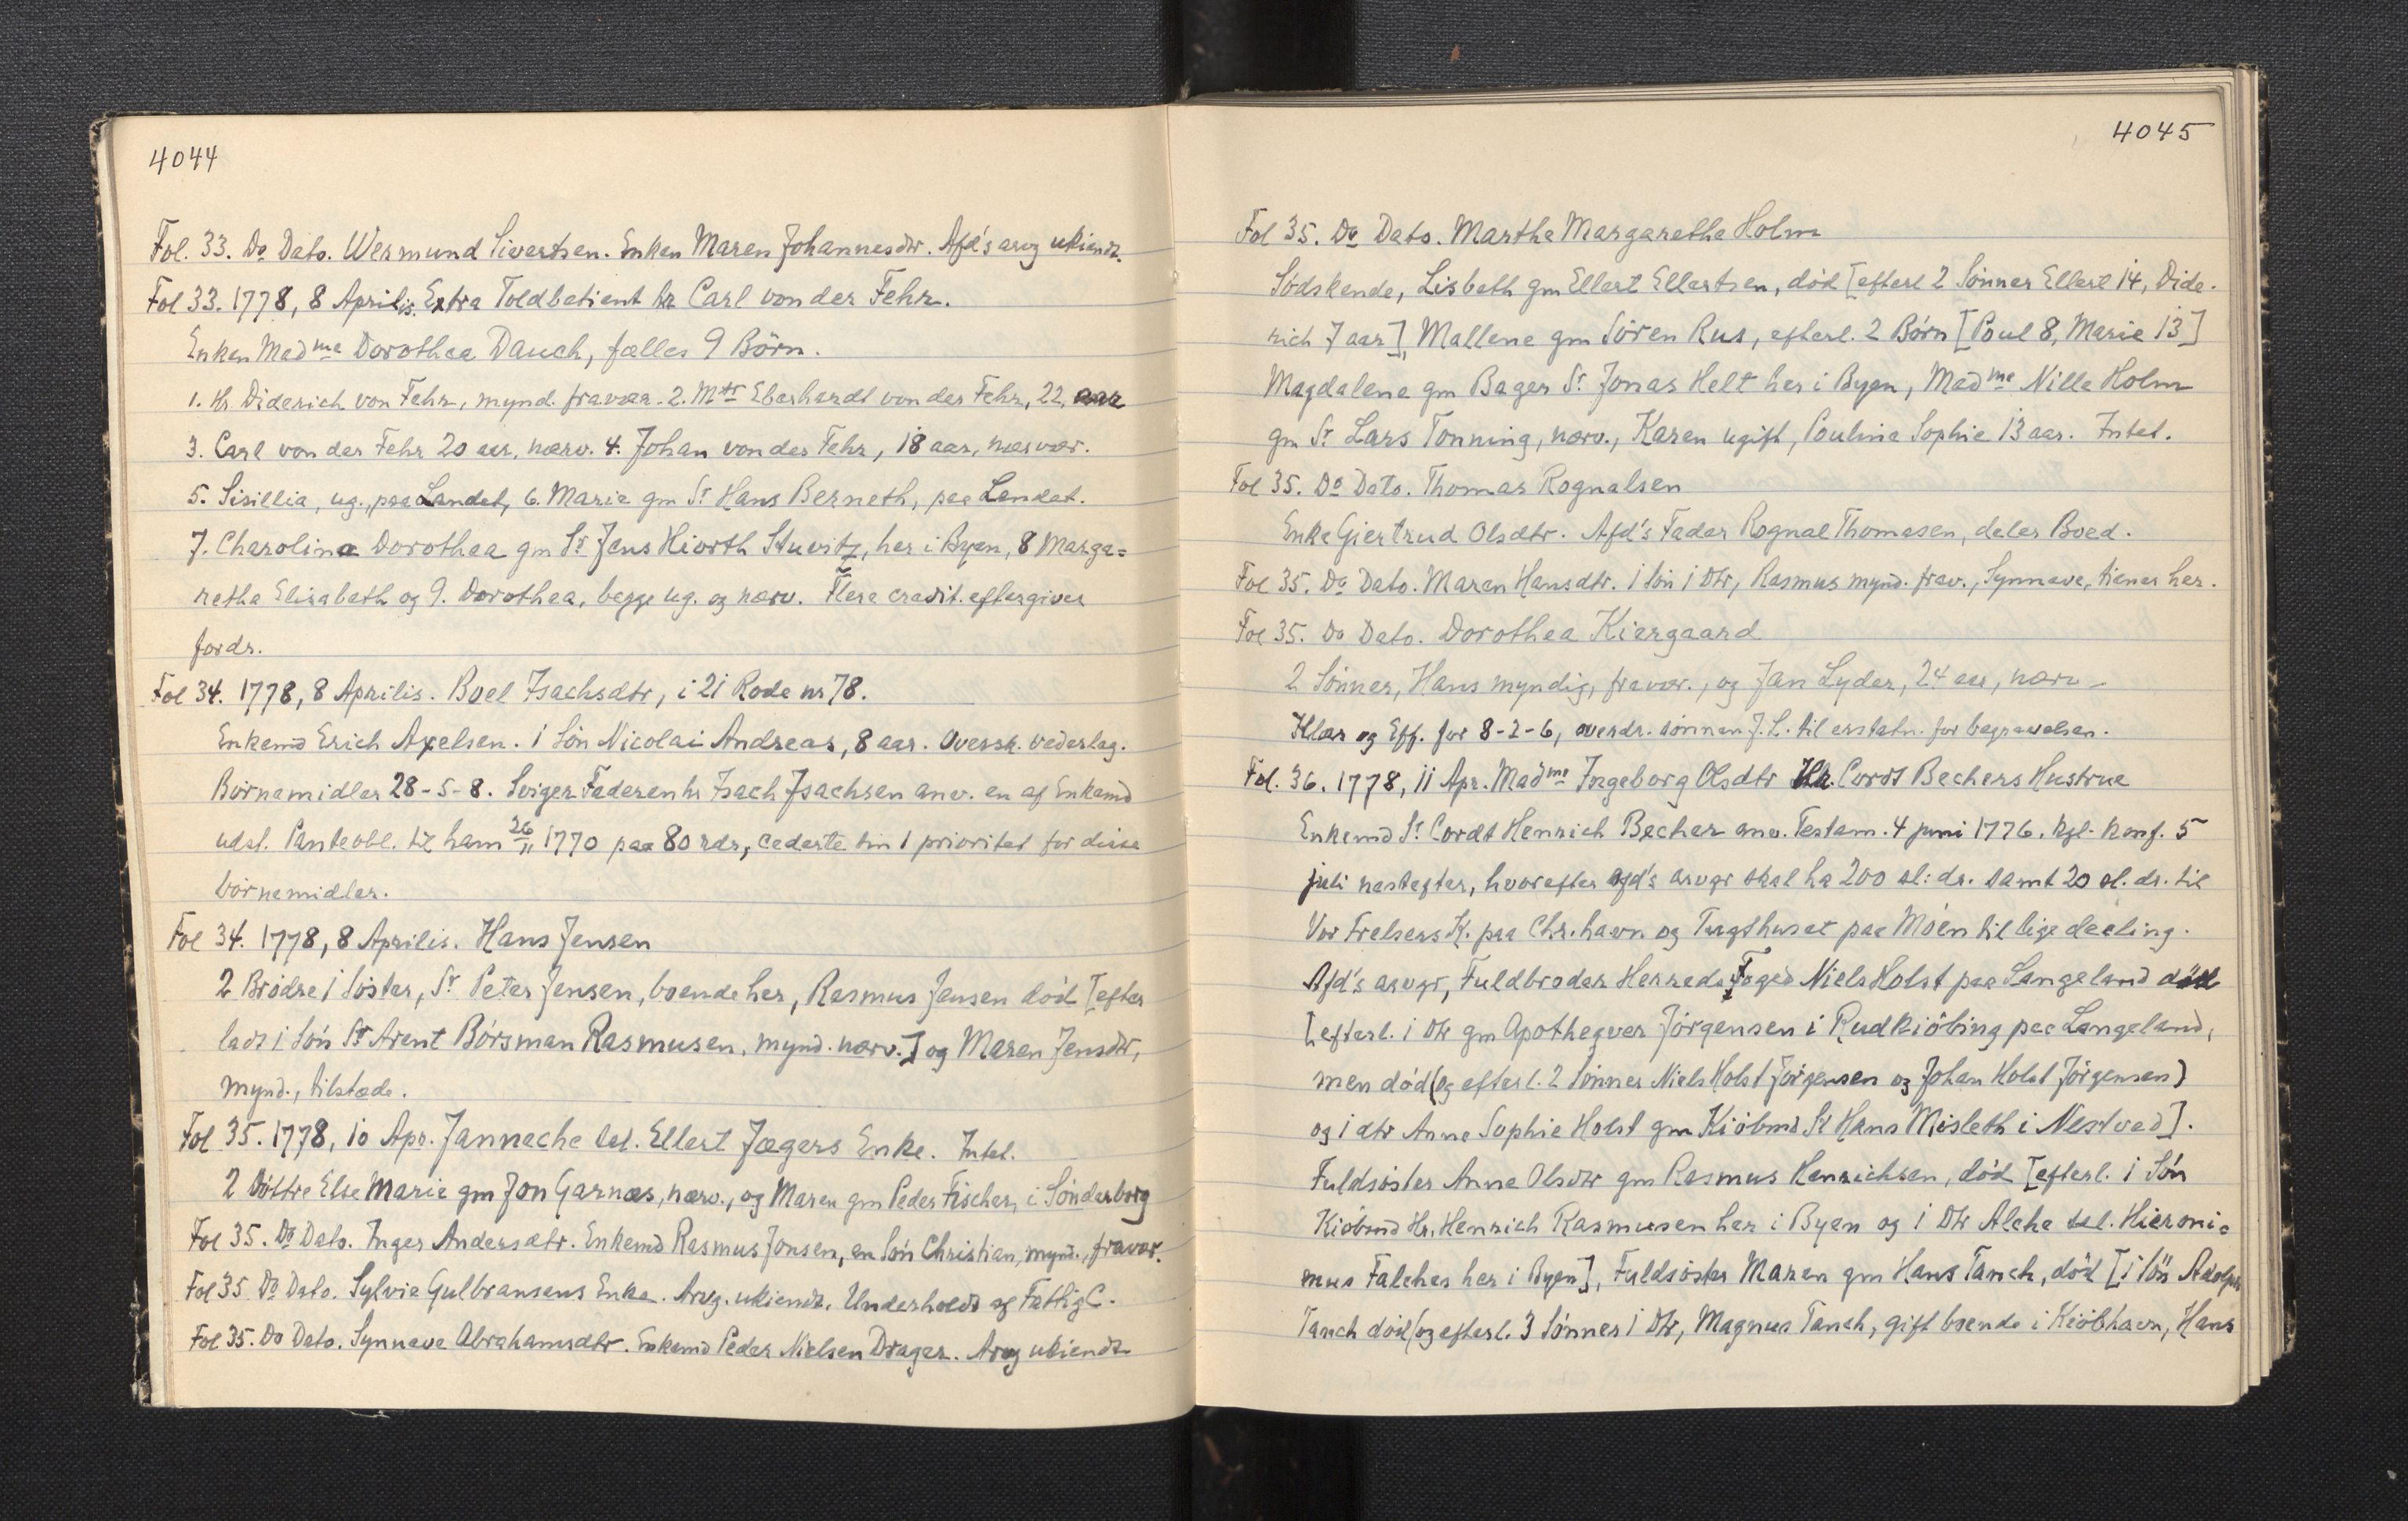 4044
Fol. 33. Do Dato. Wermund Sivertsen. Enken Maren Johannesdtr. Afd's arvg ukiendt.
Fol 33. 1778, 8 Aprilis. Extra Toldbetient hr Carl von der Fehr.
Enken Mad me Dorothea Dauch, fælles 9 Börn.
1. Hr. Diderich von Fehr, mynd. fravær. 2. Mttr Eberhardt von der Fehr, 22, aar
3. Carl von der Fehr 20 aar, nærv. 4. Johan von der Fehr, 18 aar, nærvær.
5. Sisillia, ug., paa Landet, 6. Marie gm Sr Hans Berneth, paa Landet.
7. Charolina Dorothea gm Sr Jens Hiorth Stuvitz, her i Byen, 8 Marga=
retha Elisabeth og 9. Dorothea, begge ug. og nærv. Flere credit. eftergiver
fordr.
Fol 34. 1778, 8 Aprilis. Boel Isachsdtr, i 21 Rode nr 78.
Enkemd Erich Axelsen. 1 Sön Nicolai Andreas, 8 aar. Oversk. vederlag.
Börnemidler 28-5-8. Sviger Faderen hr Isach Isachsen anv. en af Enkemd
udst. Panteobl. til ham 26/11 1770 paa 80 rdr, cederte sin 1 prioritet for disse
börnemidler.
Fol 34. 1778, 8 Aprilis. Hans Jensen
2 Brödre 1 Söster, Sr Peter Jensen, boende her, Rasmus Jensen död [efter
ladt 1 Sön Sr Arent Börsman Rasmusen, mynd. nærv.] og Maren Jensdtr,
mynd., tilstæde.
Fol 35. 1778, 10 Apr. Janneche sal. Ellert Jægers Enke. Intet.
2 Döttre Else Marie gm Jon Garnæs, nærv., og Maren gm Peder Fischer, i Sönderborg
Fol 35. Do Dato. Inger Andersdtr. Enkemd Rasmus Jonsen, en Sön Christian, mynd., fravær.
Fol 35 Do Dato. Sylvie Gulbransens Enke. Arvg. ukiendt. Underholdt af Fattig C.
Fol 35. Do Dato. Synneve Abrahamsdtr. Enkemd Peder Nielsen Drager. Arvg ukiendt
4045
Fol 35. Do Dato. Martha Margaretha Holm
Södskende, Lisbeth gm Ellert Ellertsen, död [efterl 2 Sönner Ellert 14, Dide-
rich 7 aar], Mallene gm Sören Rus, efterl. 2 Börn [Poul 8, Marie 13]
Magdalene gm Bager Sr Jonas Helt her i Byen, Mad me Nille Holm
gm Sr Lars Tonning, nærv., Karen ugift, Poulina Sophie 13 aar. Intet.
Fol 35. Do Dato. Thomas Rognalsen
Enke Giertrud Olsdtr. Afd's Fader Rognal Thomasen, deler Boed.
Fol 35. Do Dato. Maren Hansdtr. 1 Sön 1 Dtr, Rasmus mynd. frav., Synneve, tiener her.
Fol 35. Do Dato. Dorothea Kiergaard
2 Sönner, Hans myndig, fravær., og Jan Lyder, 24 aar, nærv-
Klær og Eff. for 8-2-6, overdr. sönnen J. L. til erstatn. for begravelsen.
Fol. 36. 1778, 11 Apr. Mad me Ingeborg Olsdtr Hr. Cordt Bechers Hustrue
Enkemd Sr. Cordt Henrich Becher anv. Testam. 4 juni 1776. kgl. konf. 5
juli nestefter, hvorefter afd's arvgr skal ha 200 sl: dr. samt 20 sl. dr. til
Vor Frelsers K. paa Chr.havn og Tugthuset paa Möen til lige deeling.
Afd's arvgr, Fuldbroder Herreds Foged Niels Holst paa Langeland död
[efterl. 1 Dtr gm Apotheqver Jörgensen i Rudkiöbing paa Langeland,
men död (og efterl. 2 Sönner Niels Holst Jörgensen og Johan Holst Jörgensen)
og 1 dtr Anne Sophie Holst gm Kiöbmd Sr Hans Misleth i Nestved].
Fuldsöster Anne Olsdtr gm Rasmus Henrichsen, död [efterl. 1 Sön
Kiöbmd Hr. Henrich Rasmusen her i Byen og 1 Dtr Alche sal. Hieroni=
mus Falches her i Byen], Fuldsöster Maren gm Hans Tanch, död [1 Sön Adolph
Tanch död (og efterl. 3 Sönner 1 Dtr, Magnus Tanch, gift boende i Kiöbhavn, Hans